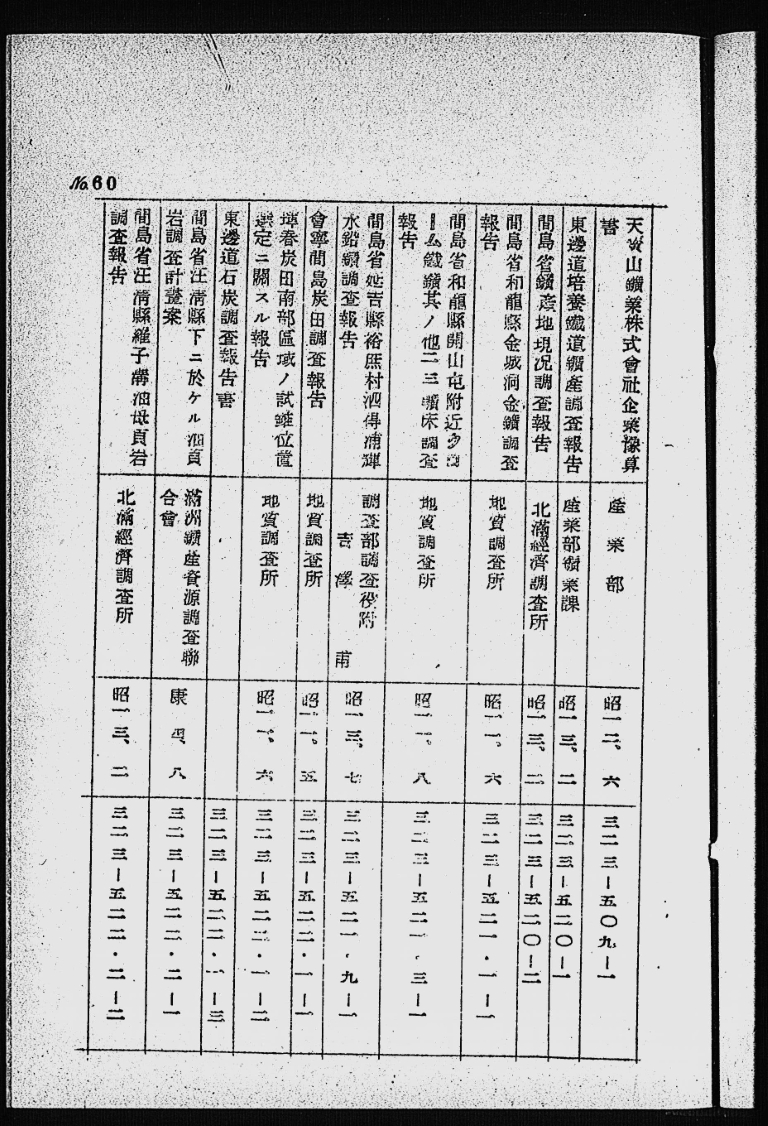 No.60
天寳山鑛業株式會社企業豫算
書
産業部
昭一二、六
三二三―五〇九―一
東邊道培養鐵道鑛産調査報告
産業部鑛業課
昭一三、二
三二三―五二〇―一
間島省鑛産地現況調査報告
北滿經濟調査所
昭一三、二
三二三―五二〇―二
間島省和龍縣金城洞金鑛調査
報告
地質調査所
昭一一、六
三二三―五二一・一―一
間島省和龍縣開山屯附近
鐵鑛其ノ他二三鑛床調査
報告
地質調査所
昭一一、八
三二三―五二一・三―一
間島省延吉縣裕庶村泗得浦輝
水鉛鑛調査報告
調査部調査役附
吉澤甫
昭一三、七
三二三―五二一・九―一
會寧間島炭田調査報告
地質調査所
昭一一、五
三二三―五二二・一―一
琿春炭田南部區域ノ試錐位置
選定ニ關スル報告
地質調査所
昭一一、六
三二三―五二二・一―二
東邊道石炭調査報告書
三二三―五二二・一―三
間島省汪淸縣下ニ於ケル油頁
岩調査計畫案
滿洲鑛産資源調査聯
合會
康四、八
三二三―五二二・二―一
間島省汪淸縣羅子溝油母頁岩
調査報告
北滿經濟調査所
昭一三、二
三二三―五二二・二―二